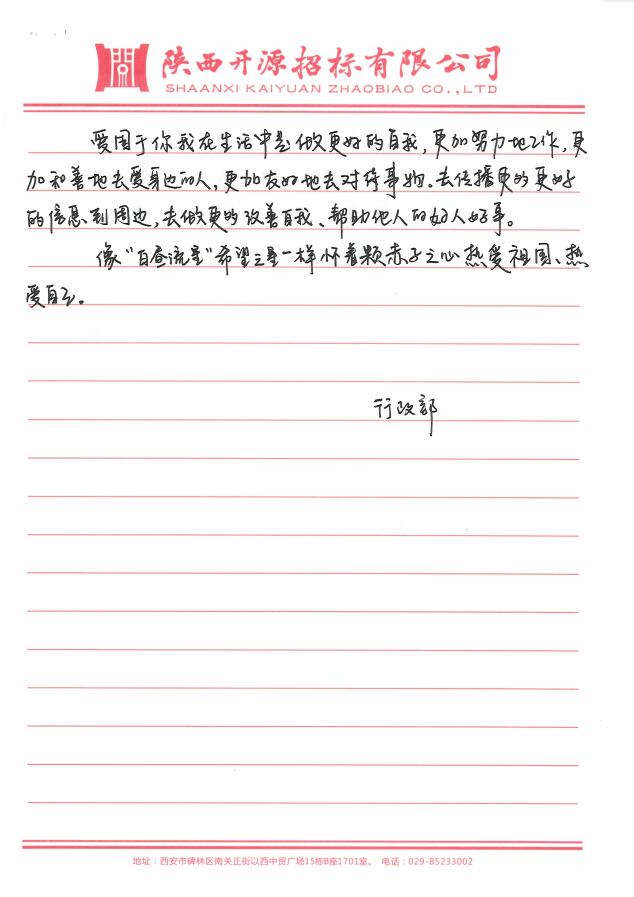 陕西开源招标有限公司
SHAANXI KAIYUAN ZHAOBIAO CO.,LTD
爱国于你我在生活中是做更好的自我，更加努力地工作，更
加和善地去爱身边的人，更加友好地去对待事物。去传播更多更好
的信息到周边，去做更多改善自我、帮助他人的好人好事。
像“白昼流星”希望之星一样怀着颗赤子之心热爱祖国、热
爱自己。
行政部
地址：西安市碑林区南关正街以西中贸广场15栋B座1701室。 电话：029-85233002